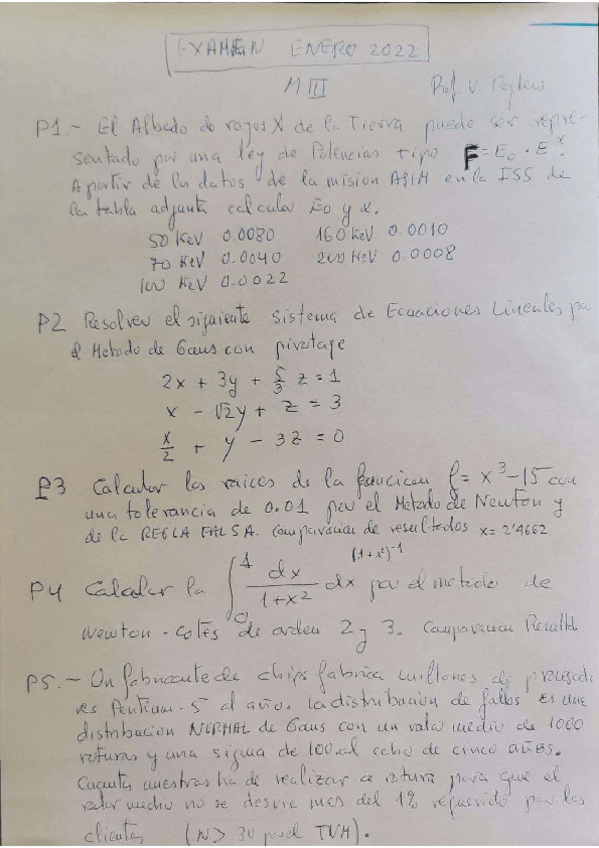 EXAMEN ENERO 2022
M III Prof V.
P1.- El Albedo de rayos X de la Tierra puede ser repre-
sentado por una ley de Potencias tipo F = E₀ · E^α.
A partir de los datos de la mision ASIM en la ISS de
la tabla adjunta calcular E₀ y α.
50 KeV 0.0080 160 KeV 0.0010
70 KeV 0.0040 200 KeV 0.0008
100 KeV 0.0022
P2 Resolver el siguiente sistema de Ecuaciones Lineales por
el Metodo de Gaus con pivotaje
2x + 3y + 5/3 z = 1
x - √2y + z = 3
x/2 + y - 3z = 0
P3 Calcular las raices de la funcion f = x³-15 con
una tolerancia de 0.01 por el Metodo de Newton y
de la REGLA FALSA. Comparacion de resultados x = 2'4662
(1+x²)⁻¹
P4 Calcular la ∫₀¹ dx/(1+x²) dx por el metodo de
Newton-cotes de orden 2 y 3. Comparacion Result
P5.- Un fabricante de chips fabrica millones de procesado
res Pentium-5 al año. la distribucion de fallos es una
distribucion NORMAL de Gaus con un valor medio de 1000
roturas y una sigma de 100. al cabo de cinco años.
Cuantas muestras ha de realizar a rotura para que el
valor medio no se desvie mas del 1% requerido por los
clientes (N > 30 por el TVM).